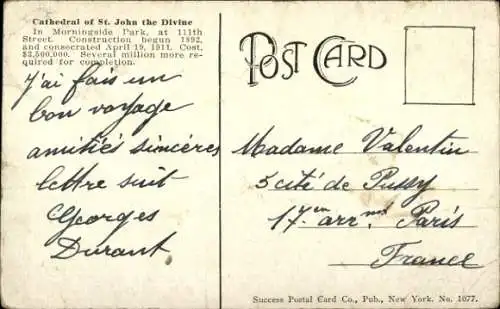 Cathedral of St. John the Divine
In Morningside Park, at 111th
Street. Construction begun 1892,
and consecrated April 19, 1911. Cost,
$3,500,000. Several million more re-
quired for completion.
J'ai fais un
bon voyage
amitiés sincères
lettre suit
Georges
Durant
POST CARD
Madame Valentin
5 cité de Pussy
17en arrmt Paris
France
Success Postal Card Co., Pub., New York. No. 1077.